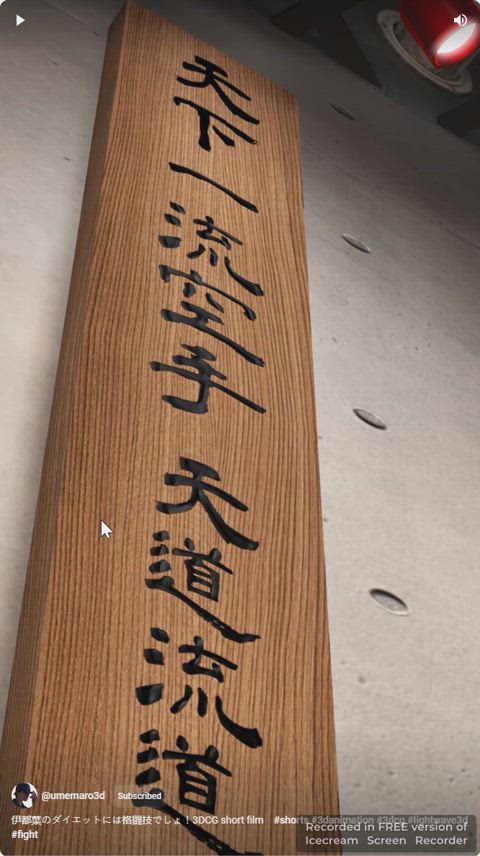 天下一流空手 天道流道
@umemaro3d Subscribed
伊都葉のダイエットには格闘技でしょ！3DCG short film #shorts #3danimation #3dcg #lightwave3d
#fight
Recorded in FREE version of
Icecream Screen Recorder